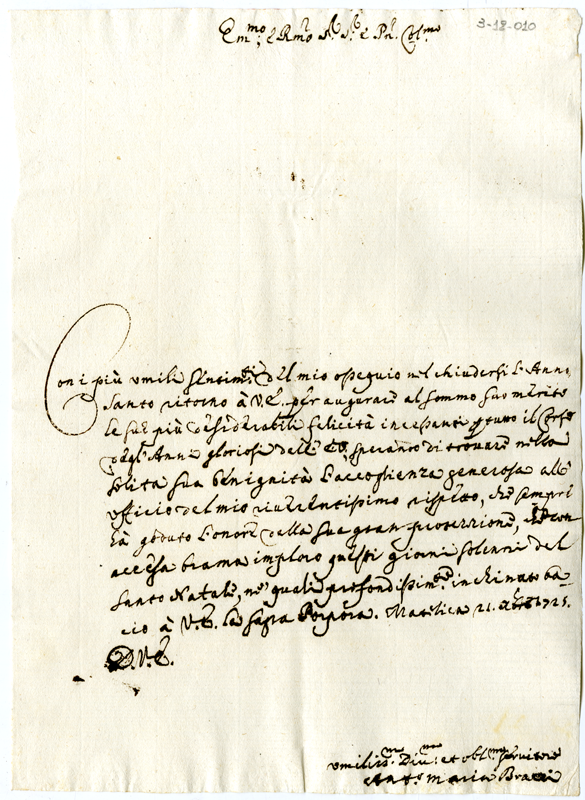 Em.mo, e Rm̃o Sig.r Sig.r e Pñ. Col.mo
3-18-010
Con i più vmili sentim.ti del mio ossequio nel chiudersi l'Anno
Santo ritorno à V.E. per augurare al sommo suo merito
le sue più desiderabili felicità incessanti p tutto il corso
degl'Anni gloriosi dell'E.V., sperando di trouare nella
solita sua benignità l'accoglienza generosa all'
vfficio del mio riuerentissimo rispetto, che sempre
hà goduto l'onore della sua gran protezzione, che con
accesa brama imploro questi giorni solenni del
Santo Natale, ne' quali profondissim.te inchinato ba-
cio à V.E. la sagra Porpora. Matelica 21. Xbre 1725.
D.V.E.
vmiliss.mo Diu.mo et obl.mo seruitore
Ant.o Maria